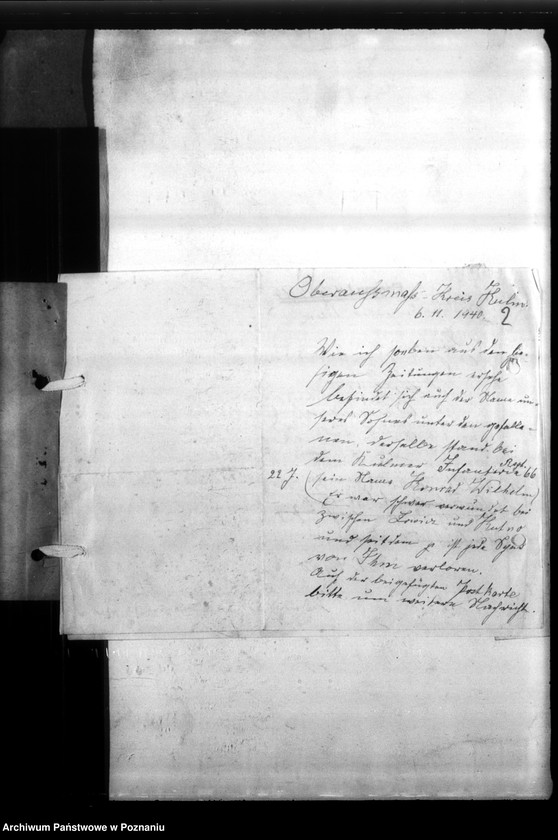 Oberausmaß-Kreis Kulm.
6. 11. 1940. 2
Wie ich soeben aus den hie-
sigen Zeitungen ersehe
befindet sich auch der Name un-
seres Sohnes unter den gefalle-
nen. derselbe stand bei
dem Kulmer Infanterie Regt. 66
22 J. (sein Name Konrad Wilhelm)
Er war schwer verwundet bei
zwischen Lowicz und Kutno
und seitdem ist jede Spur
von Ihm verloren.
Auf der beigefügten Postkarte
bitte um weitere Nachricht.
Archiwum Państwowe w Poznaniu